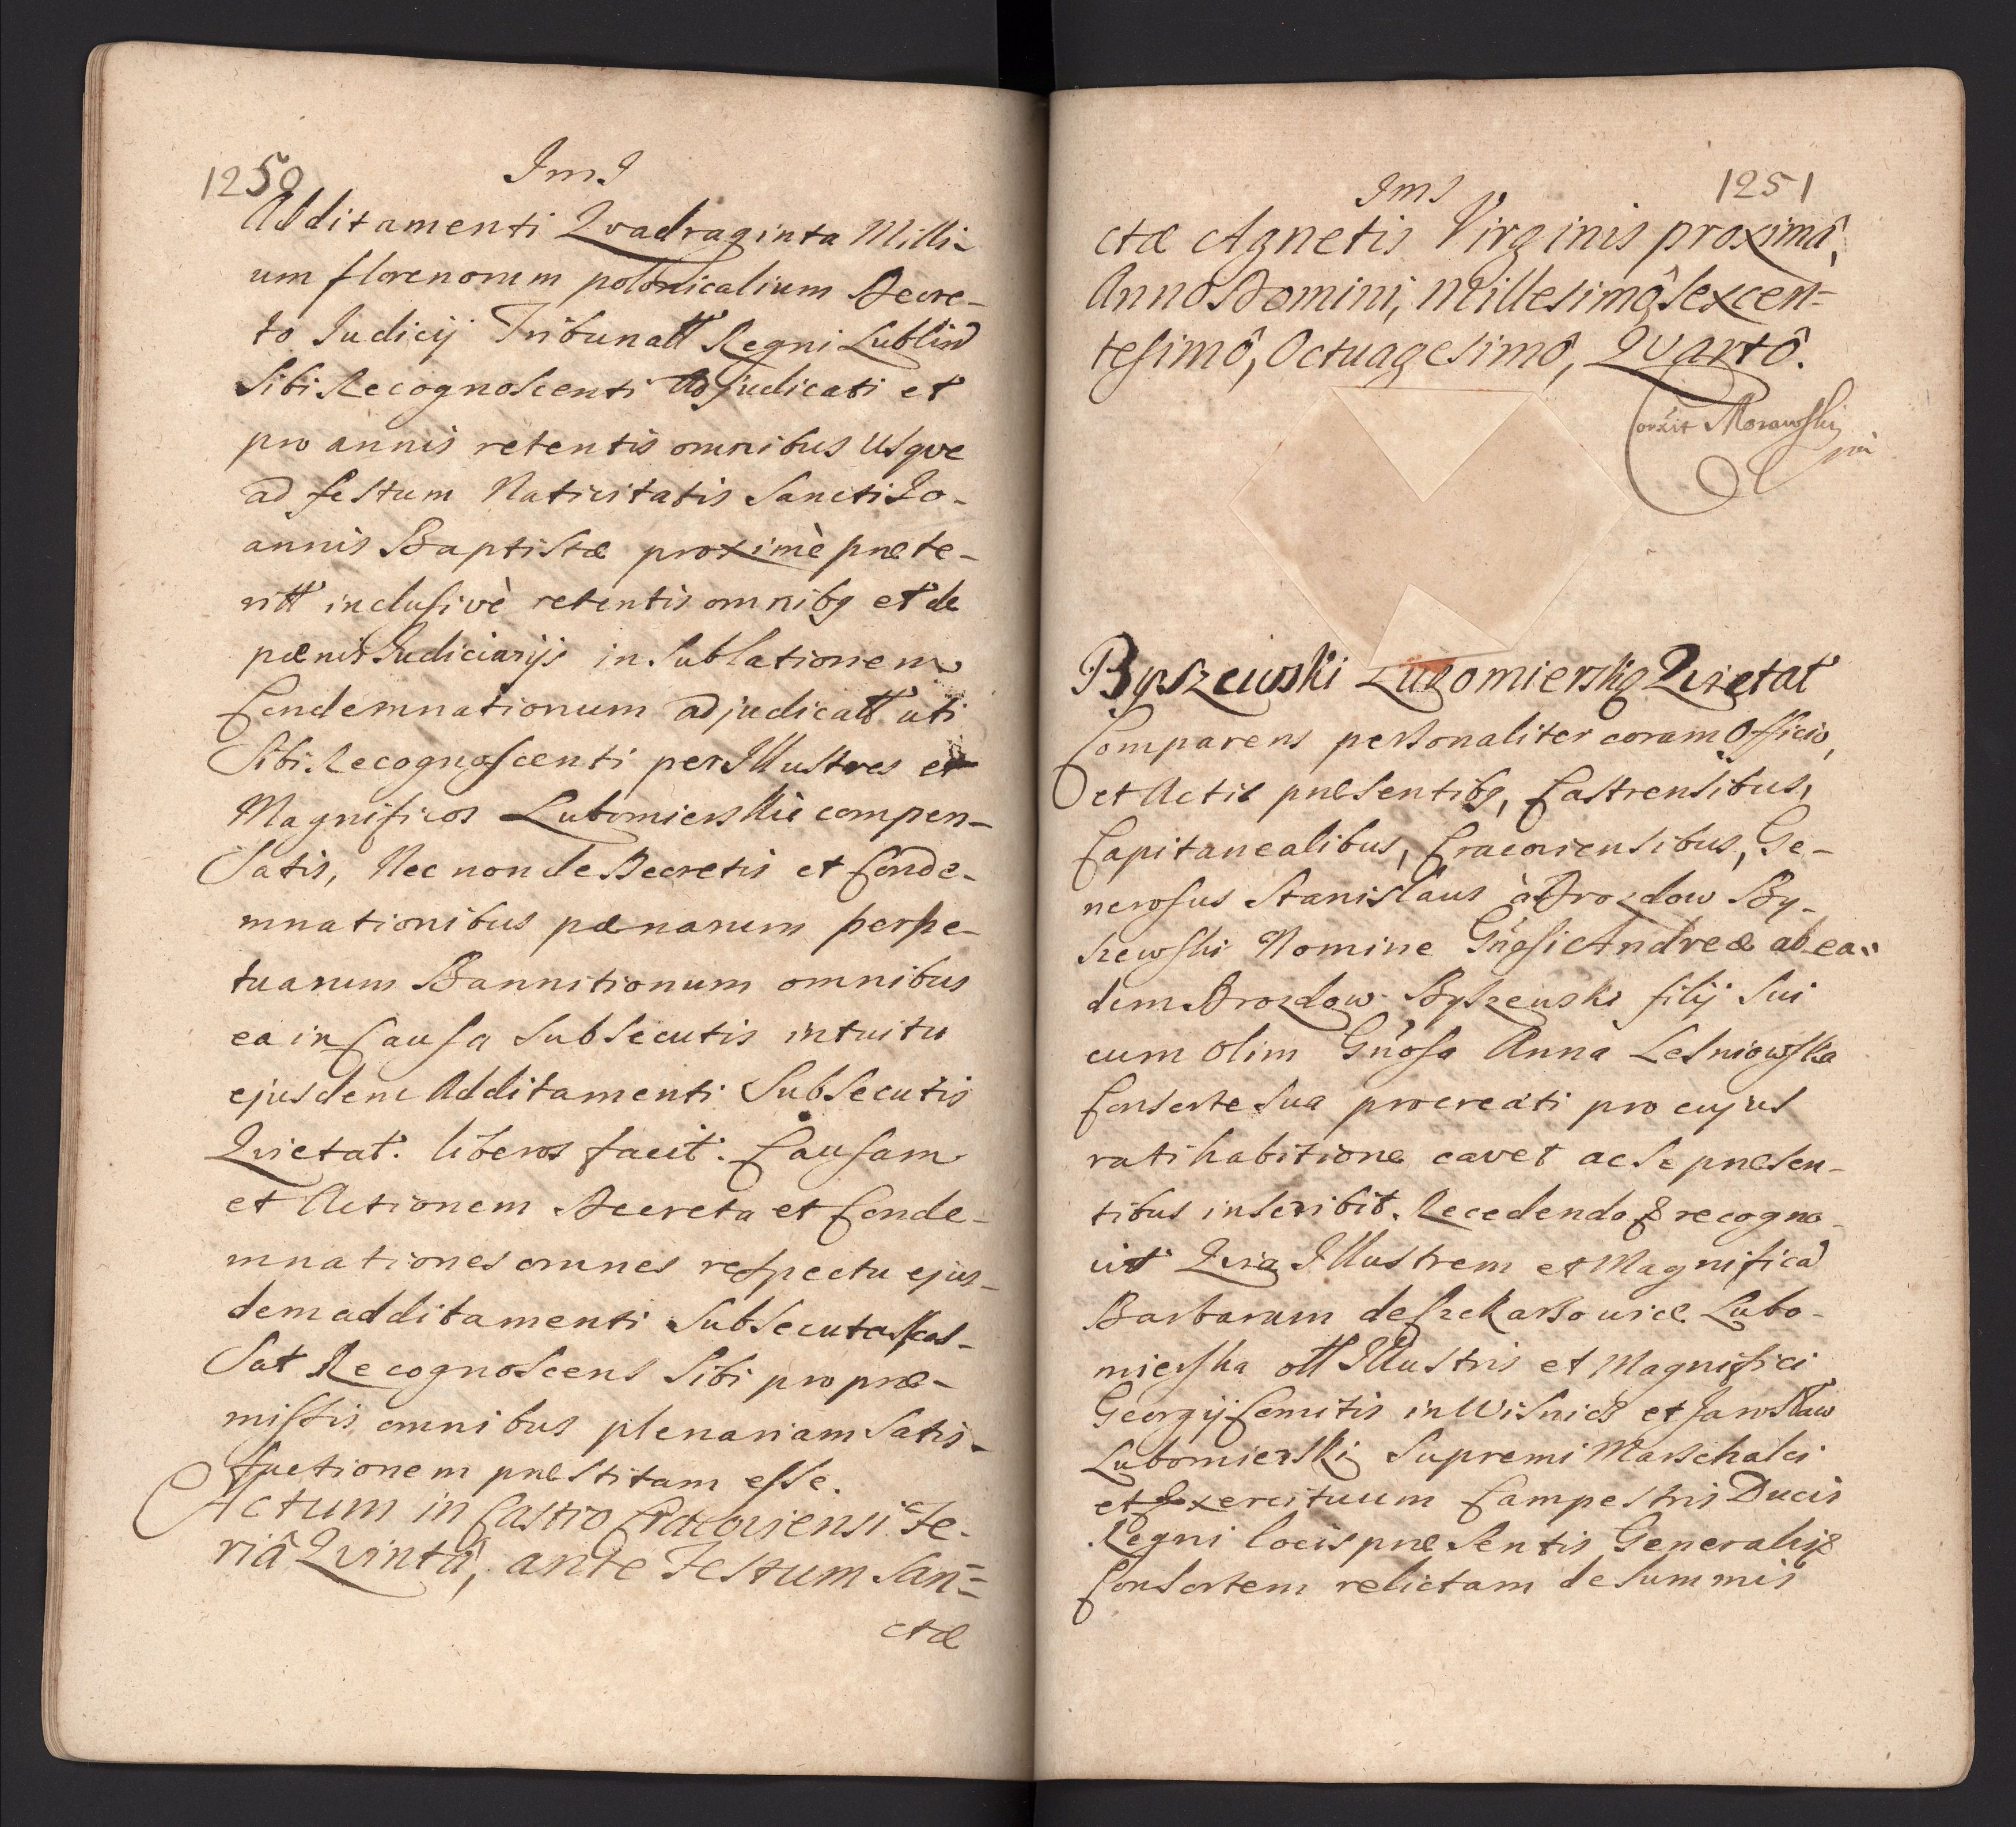 1250
Ims
Additamenti Qvadraginta Milli-
um florenorum polonicalium Decre-
to Judicij Tribunatt Regni Lublin
Sibi Recognoscenti Adjudicati et
pro annis retentis omnibus Usqve
ad festum Nativitatis Sancti Jo-
annis Baptistæ proximè præte-
ritt inclusivè retentis omnibq et de
pænis Judiciarijs in Sublationem
Condemnationum adjudicatt uti
Sibi Recognoscenti per Illustres et
Magnificos Lubomierskie compen-
satis, Nec non de Decretis et Conde-
mnationibus pænarum perpe-
tuarum Bannitionum omnibus
ea in Causa Subsecutis intuitu
ejusdem Additamenti Subsecutis
Qvietat. liberos facit. Causam
et Actionem Decreta et Conde-
mnationes omnes respectu ejus-
dem additamenti Subsecutas Cas-
sat Recognoscens Sibi pro præ-
missis omnibus plenariam Satis-
factionem præstitam esse.
Actum in Castro Cracoviensi Fe-
riâ Qvintâ, ante Festum San=
ctæ
1251
Ims
ctæ Agnetis Virginis proximâ,
Annô Domini, Millesimô Sexcen=
tesimô, Octuagesimô, Qvartô.
Corrxit Morawski
mp
Byszewski Lubomierską Qvietat
Comparens personaliter coram Officio,
et Actis præsentibq, Castrensibus,
Capitanealibus, Cracoviensibus, Ge-
nerosus Stanislaus à Brozdow By-
szewski Nomine Gnosi Andreæ ab ea-
dem Brozdow Byszewski filij Sui
cum olim Gnosa Anna Lesniowska
Consorte Sua procreati pro cujus
ratihabitione cavet ac Se præsen-
tibus inscribit. Recedendo & recogno-
vit Qvia Illustrem et Magnificã
Barbaram de Szekarzowice Lubo-
mierska ott Illustris et Magnifici
Georgij Comitis in Wisnicz et Jarosław
Lubomierski Supremi Marschalci
et Exercituum Campestris Ducis
Regni locis præsentis Generalis
Consortem relictam de Summis